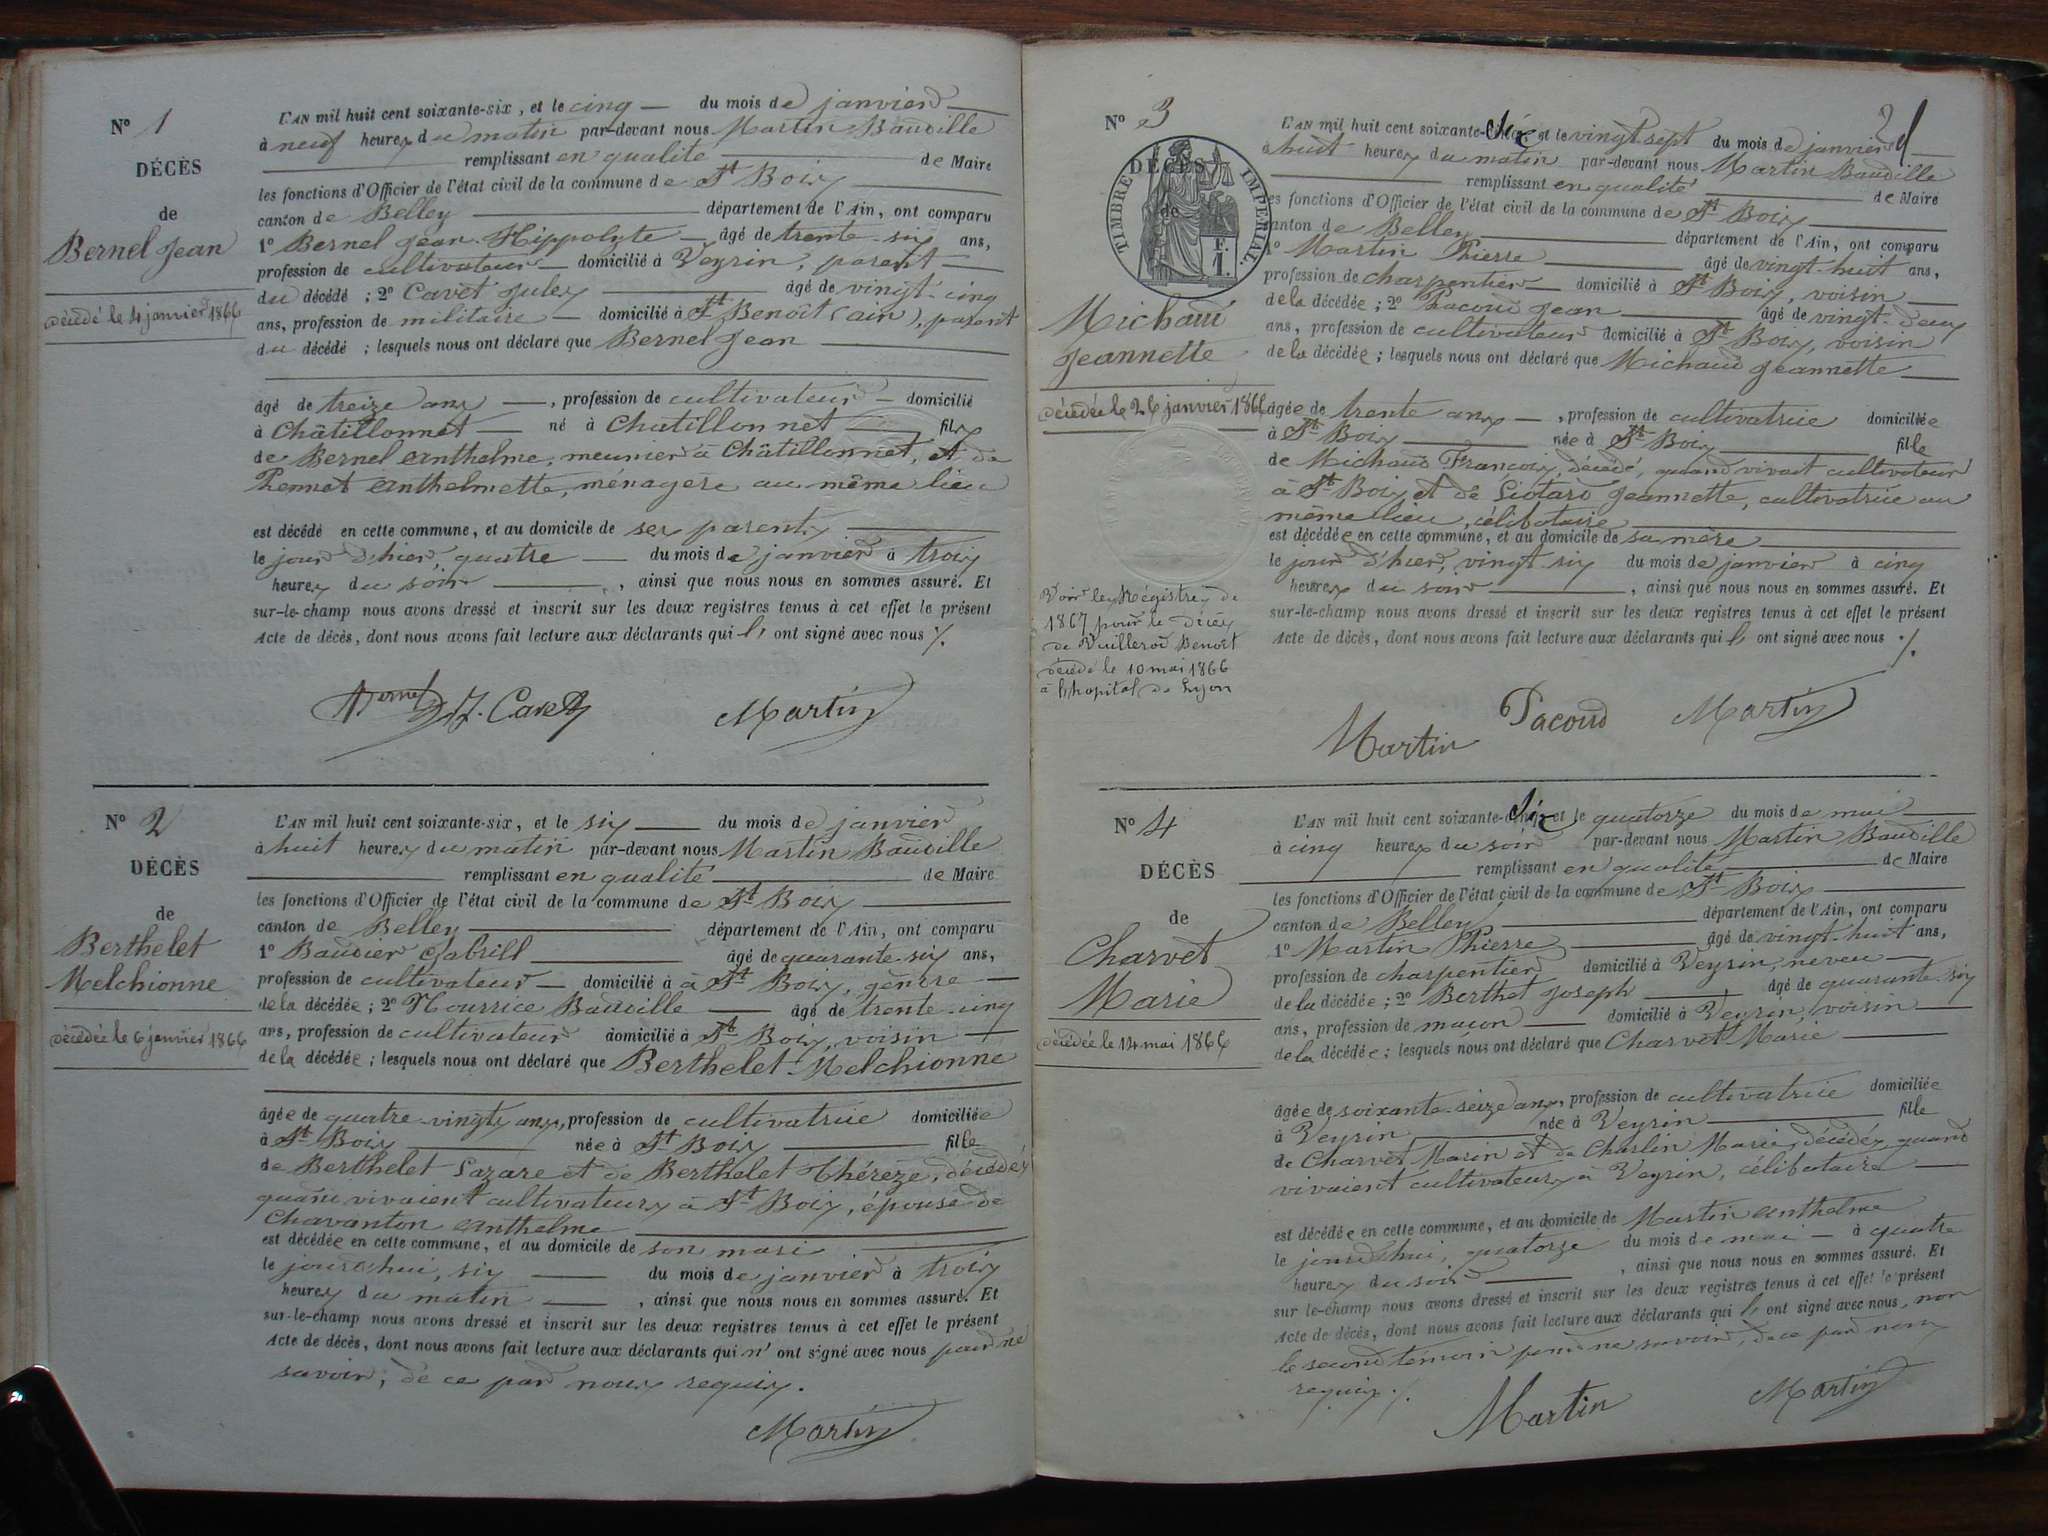 N° 1
DÉCÈS
de
Bernel Jean
décédé le 4 janvier 1866
L'AN mil huit cent soixante-six, et le cinq du mois de janvier
à neuf heures du matin par-devant nous Martin Baudille
remplissant en qualité de Maire
les fonctions d'Officier de l'état civil de la commune de St Bois
canton de Belley département de l'Ain, ont comparu
1° Bernel Jean-Hippolyte âgé de trente-six ans,
profession de cultivateur domicilié à Veyrin, parent
du décédé ; 2° Cavet Jules âgé de vingt-cinq
ans, profession de militaire domicilié à St Benoit (ain), parent
du décédé ; lesquels nous ont déclaré que Bernel Jean
âgé de treize ans, profession de cultivateur domicilié
à Châtillonnet né à Chatillonnet fils
de Bernel Anthelme, meunier à Châtillonnet, et de
Pennet Anthelmette, ménagère au même lieu
est décédé en cette commune, et au domicile de ses parents
le jour d'hier, quatre du mois de janvier à trois
heures du soir, ainsi que nous nous en sommes assuré. Et
sur-le-champ nous avons dressé et inscrit sur les deux registres tenus à cet effet le présent
Acte de décès, dont nous avons fait lecture aux déclarants qui ont signé avec nous ./.
Bernel J. Cavet Martin
N° 2
DÉCÈS
de
Berthelet
Melchionne
décédée le 6 janvier 1866
L'AN mil huit cent soixante-six, et le six du mois de janvier
à huit heures du matin par-devant nous Martin Baudille
remplissant en qualité de Maire
les fonctions d'Officier de l'état civil de la commune de St Bois
canton de Belley département de l'Ain, ont comparu
1° Baudier Gabrill âgé de quarante-six ans,
profession de cultivateur domicilié à à St Bois, gendre
de la décédée ; 2° Nourrice Baudille âgé de trente-cinq
ans, profession de cultivateur domicilié à St Bois, voisin
de la décédée ; lesquels nous ont déclaré que Berthelet Melchionne
âgée de quatre-vingts ans, profession de cultivatrice domiciliée
à St Bois née à St Bois fille
de Berthelet Lazare et de Berthelet Thérèze, décédés
quand vivaient cultivateurs à St Bois, épouse de
Chavanton Anthelme
est décédée en cette commune, et au domicile de son mari
le jourd'hui, six du mois de janvier à trois
heures du matin, ainsi que nous nous en sommes assuré. Et
sur-le-champ nous avons dressé et inscrit sur les deux registres tenus à cet effet le présent
Acte de décès, dont nous avons fait lecture aux déclarants qui n'ont signé avec nous pour ne
savoir, de ce par nous requis.
Martin
2
N° 3
DÉCÈS
de
TIMBRE IMPÉRIAL
F.
1.
Michaud
Jeannette
décédée le 26 janvier 1866
Voir les Régistres de
1867 pour le décès
de Vuillerod Benoit
décédé le 10 mai 1866
à l'hopital de Lyon
L'AN mil huit cent soixante-six et le vingt-sept du mois de janvier
à huit heures du matin par-devant nous Martin Baudille
remplissant en qualité de Maire
les fonctions d'Officier de l'état civil de la commune de St Bois
canton de Belley département de l'Ain, ont comparu
1° Martin Pierre âgé de vingt-huit ans,
profession de charpentier domicilié à St Bois, voisin
de la décédée ; 2° Pacoud Jean âgé de vingt-deux
ans, profession de cultivateur domicilié à St Bois, voisin
de la décédée ; lesquels nous ont déclaré que Michaud Jeannette
âgée de trente ans, profession de cultivatrice domiciliée
à St Bois née à St Bois fille
de Michaud François, décédé, quand vivait cultivateur
à St Bois et de Liotard Jeannette, cultivatrice au
même lieu, célibataire
est décédée en cette commune, et au domicile de sa mère
le jour d'hier, vingt-six du mois de janvier à cinq
heures du soir, ainsi que nous nous en sommes assuré. Et
sur-le-champ nous avons dressé et inscrit sur les deux registres tenus à cet effet le présent
Acte de décès, dont nous avons fait lecture aux déclarants qui ont signé avec nous ./.
Martin Pacoud Martin
N° 4
DÉCÈS
de
Charvet
Marie
décédée le 14 mai 1866
L'AN mil huit cent soixante-six et le quatorze du mois de mai
à cinq heures du soir par-devant nous Martin Baudille
remplissant en qualité de Maire
les fonctions d'Officier de l'état civil de la commune de St Bois
canton de Belley département de l'Ain, ont comparu
1° Martin Pierre âgé de vingt-huit ans,
profession de charpentier domicilié à Veyrin, neveu
de la décédée ; 2° Berthet Joseph âgé de quarante-six
ans, profession de maçon domicilié à Veyrin, voisin
de la décédée ; lesquels nous ont déclaré que Charvet Marie
âgée de soixante-seize ans, profession de cultivatrice domiciliée
à Veyrin née à Veyrin fille
de Charvet Marin et de Charlin Marie, décédés, quand
vivaient cultivateurs à Veyrin, célibataire
est décédée en cette commune, et au domicile de Martin Anthelme
le jourd'hui, quatorze du mois de mai à quatre
heures du soir, ainsi que nous nous en sommes assuré. Et
sur le-champ nous avons dressé et inscrit sur les deux registres tenus à cet effet le présent
Acte de décès, dont nous avons fait lecture aux déclarants qui ont signé avec nous, non
le second témoin pour ne savoir, de ce par nous
requis ./.
Martin Martin